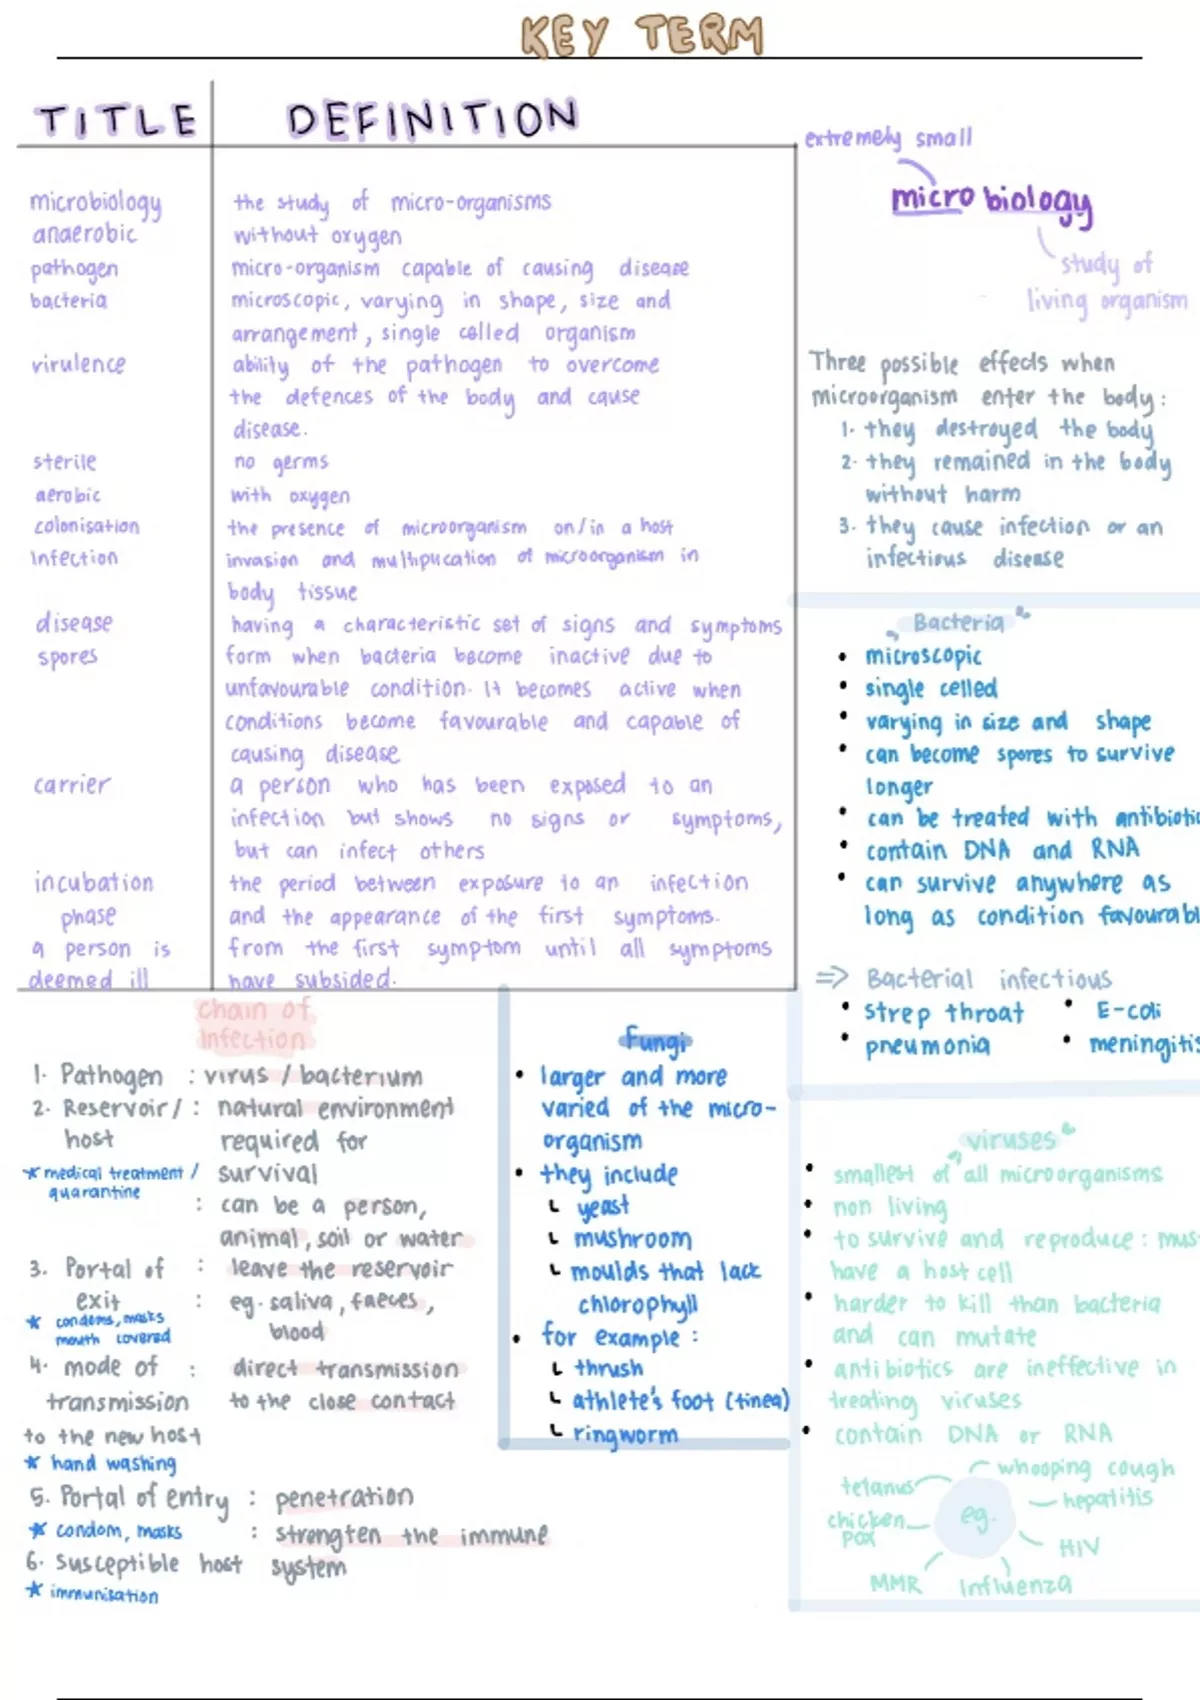 KEY TERM
TITLE DEFINITION
microbiology the study of micro-organisms
anaerobic without oxygen
pathogen micro-organism capable of causing disease
bacteria microscopic, varying in shape, size and
arrangement, single celled organism
virulence ability of the pathogen to overcome
the defences of the body and cause
disease.
sterile no germs
aerobic with oxygen
colonisation the presence of microorganism on/in a host
Infection invasion and multiplication of microorganism in
body tissue
disease having a characteristic set of signs and symptoms
spores form when bacteria become inactive due to
unfavourable condition. It becomes active when
conditions become favourable and capable of
causing disease
carrier a person who has been exposed to an
infection but shows no signs or symptoms,
but can infect others
incubation the period between exposure to an infection
phase and the appearance of the first symptoms.
a person is from the first symptom until all symptoms
deemed ill have subsided.
extremely small
microbiology
study of
living organism
Three possible effects when
microorganism enter the body:
1. they destroyed the body
2. they remained in the body
without harm
3. they cause infection or an
infectious disease
Bacteria
• microscopic
• single celled
• varying in size and shape
• can become spores to survive
longer
• can be treated with antibiotic
• contain DNA and RNA
• can survive anywhere as
long as condition favourabl
=> Bacterial infectious
• strep throat • E-coli
• pneumonia • meningitis
chain of
Infection
1. Pathogen : virus / bacterium
2. Reservoir/ : natural environment
host required for
* medical treatment / survival
quarantine : can be a person,
animal, soil or water
3. Portal of : leave the reservoir
exit : eg. saliva, faeces,
* condoms, masks blood
mouth covered
4. mode of : direct transmission
transmission to the close contact
to the new host
* hand washing
5. Portal of entry : penetration
* condom, masks : strengten the immune
6. Susceptible host system
* immunisation
Fungi
• larger and more
varied of the micro-
organism
• they include
↳ yeast
↳ mushroom
↳ moulds that lack
chlorophyll
• for example :
↳ thrush
↳ athlete's foot (tinea)
↳ ringworm
viruses
• smallest of all microorganisms
• non living
• to survive and reproduce : mus
have a host cell
• harder to kill than bacteria
and can mutate
• antibiotics are ineffective in
treating viruses
• contain DNA or RNA
eg.
whooping cough
tetanus
hepatitis
chicken
pox
HIV
MMR
Influenza